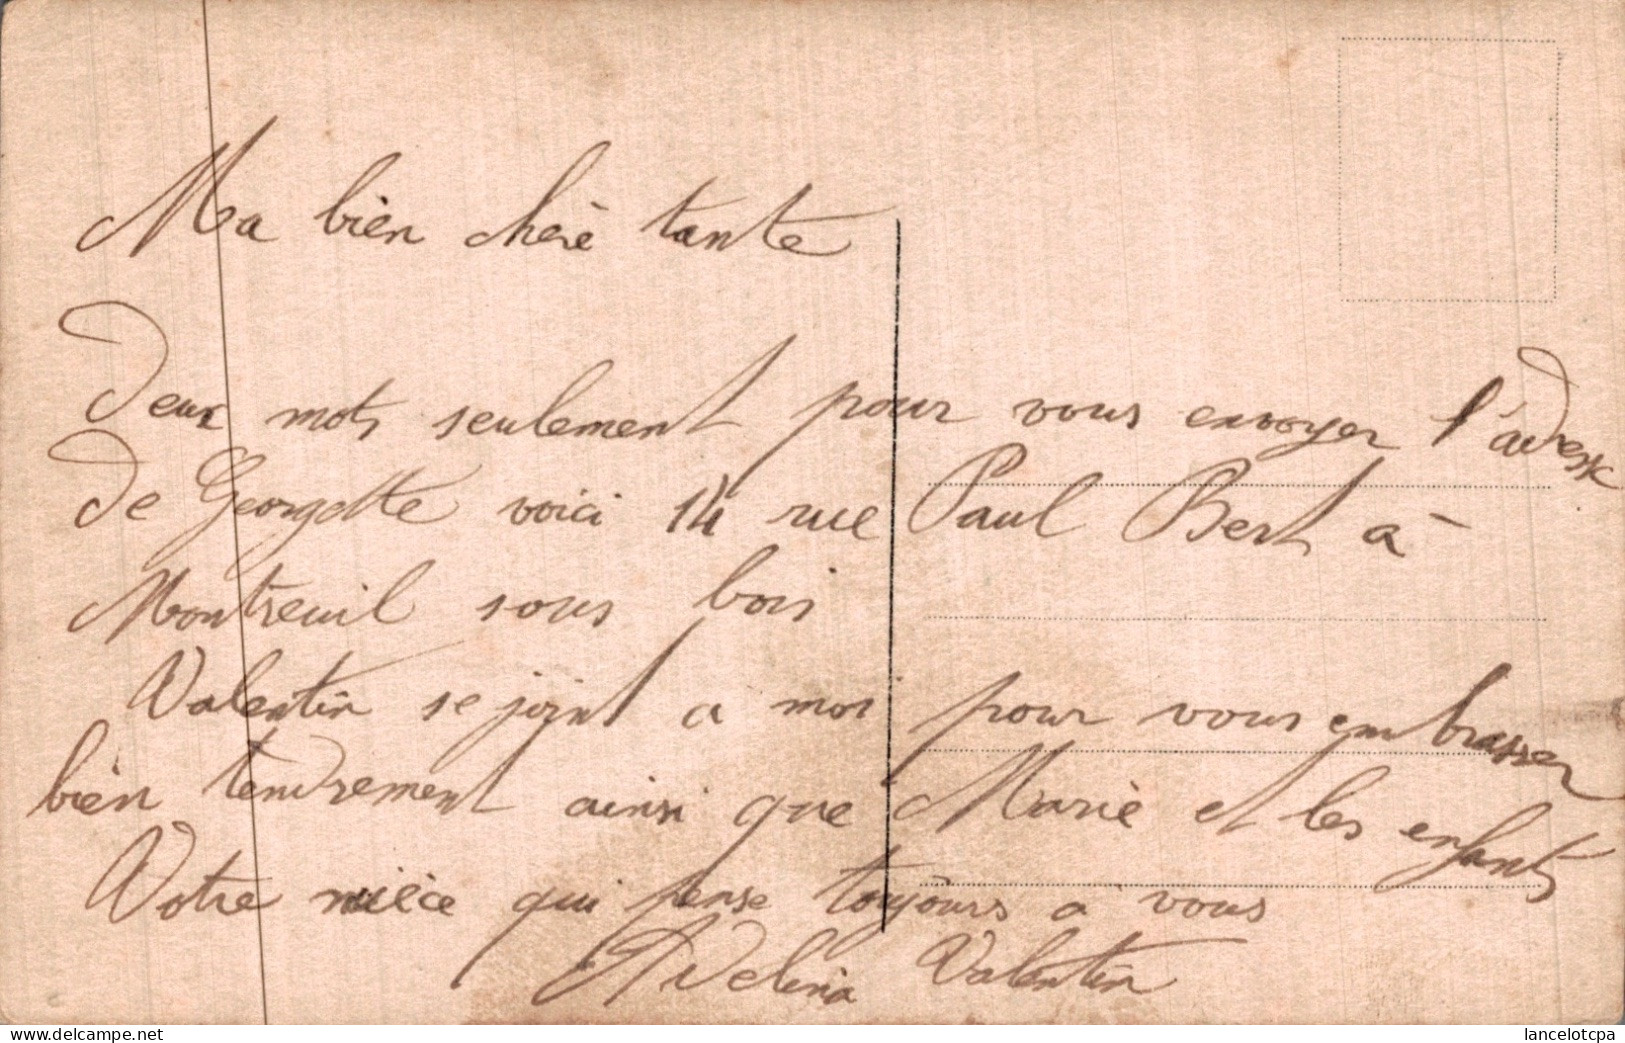 Ma bien chère tante
Deux mots seulement pour vous envoyer l'adresse
de Georgette voici 14 rue Paul Bert à
Montreuil sous bois
Valentin se joint a moi pour vous embrasser
bien tendrement ainsi que Marie et les enfants
Votre nièce qui pense toujours a vous
Adelina Valentin
www.delcampe.net
lancelotcpa